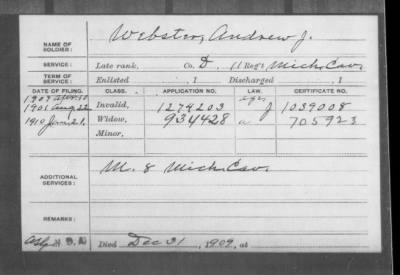 NAME OF SOLDIER: Webster, Andrew J.
SERVICE: Late rank, Co. D, 11 Reg't Mich. Cav.
TERM OF SERVICE: Enlisted , 1 Discharged , 1
DATE OF FILING. CLASS. APPLICATION NO. LAW. CERTIFICATE NO.
1907 Apr. 10
1901 Aug 22 Invalid, 1274203 J 1039008
1910 Widow, 934428 a 705923
Minor,
ADDITIONAL SERVICES: M. 8 Mich. Cav.
REMARKS:
Died Dec 31, 1909, at